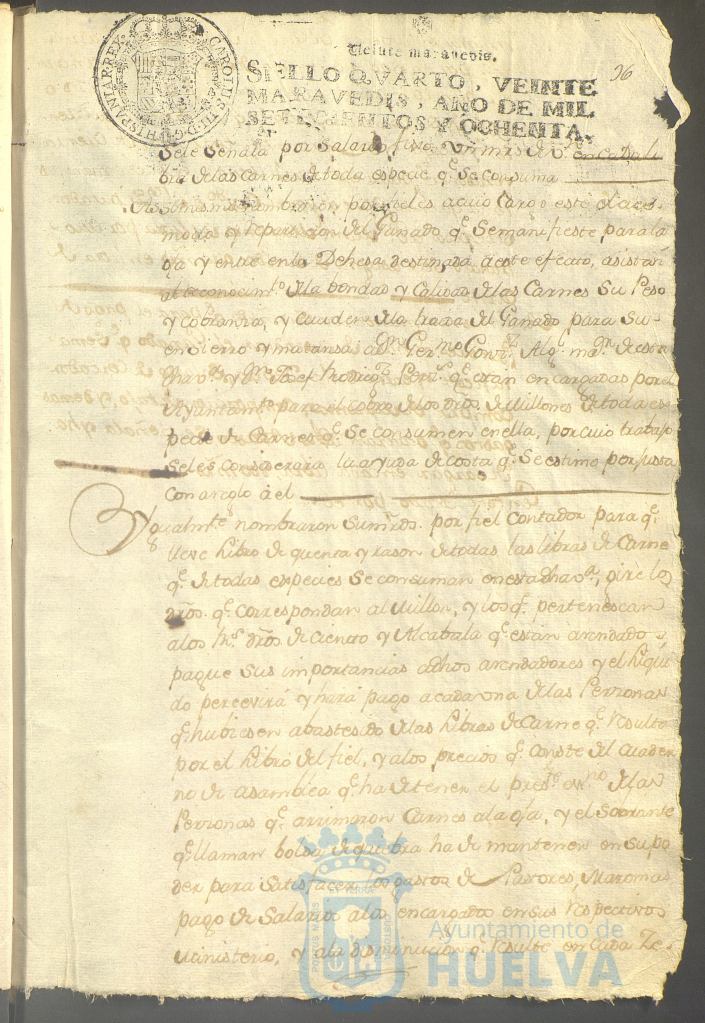 CAROLUS III D G HISPANIAR REX
Veinte maravedis.
96
SELLO QVARTO, VEINTE
MARAVEDIS, AÑO DE MIL
SETECIENTOS Y OCHENTA.
Sele Señala por Salario fixo Un mrs de Vn en cada li
bra de las Carnes de toda especie qe. Se consuma
Asimismo nombraron por fieles a cuio Cargo esté
y repartición del Ganado qe. Se manifieste para la
y entre en la Dehesa destinada a este efecto, asistan
al reconocimto. de la bondad y Calidad de las Carnes Su Peso
y Cobranza, y cuiden de la traida del Ganado, para Su
ensierro y matansa a Dn. Germo. Gonz. Algl. mr. de esta
dha va. y Dn. Josef Rodrigz. qe. estan encargadas por el
Ayuntamto. para el cobro de los dros. de Millones de toda es
pecie de Carnes qe. Se consumen en ella, por cuio trabajo
Seles considerará la ayuda de Costa qe. Se estime por justa
con arreglo á el
Ygualmte. nombraron Sus mrds. por fiel Contador para qe.
lleve Libro de quenta y rason de todas las libras de Carne
qe. de todas especies Se consuman en esta dha va., gire los
dros. qe. correspondan al Millon, y los qe. pertenescan
a los Rs. dros. de Ciento y Alcabala qe. están arrendados
pague Sus importancias a dhos arrendadores y el liqui
do percevirá y hará pago a cada una de las Perzonas
qe. hubiesen abastesido de las Libras de Carne qe. resulte
por el Libro del fiel, y a los precios qe. conste del Cuader
no de asamblea qe. ha de tener el prese. esno. de las
Perzonas qe. arrimaron Carnes a la oja, y el Sobrante
qe. llaman bolsa de quiebra ha de mantener en su po
der para Satisfacer los gastos de Pastores, Maromas
pago de Salarios a los encargados en sus respectivos
Ministerio, y a la disminución qe. resulte en Cada
PORTUS MARIS ET TERRAE CUSTODIA
Ayuntamiento de
HUELVA